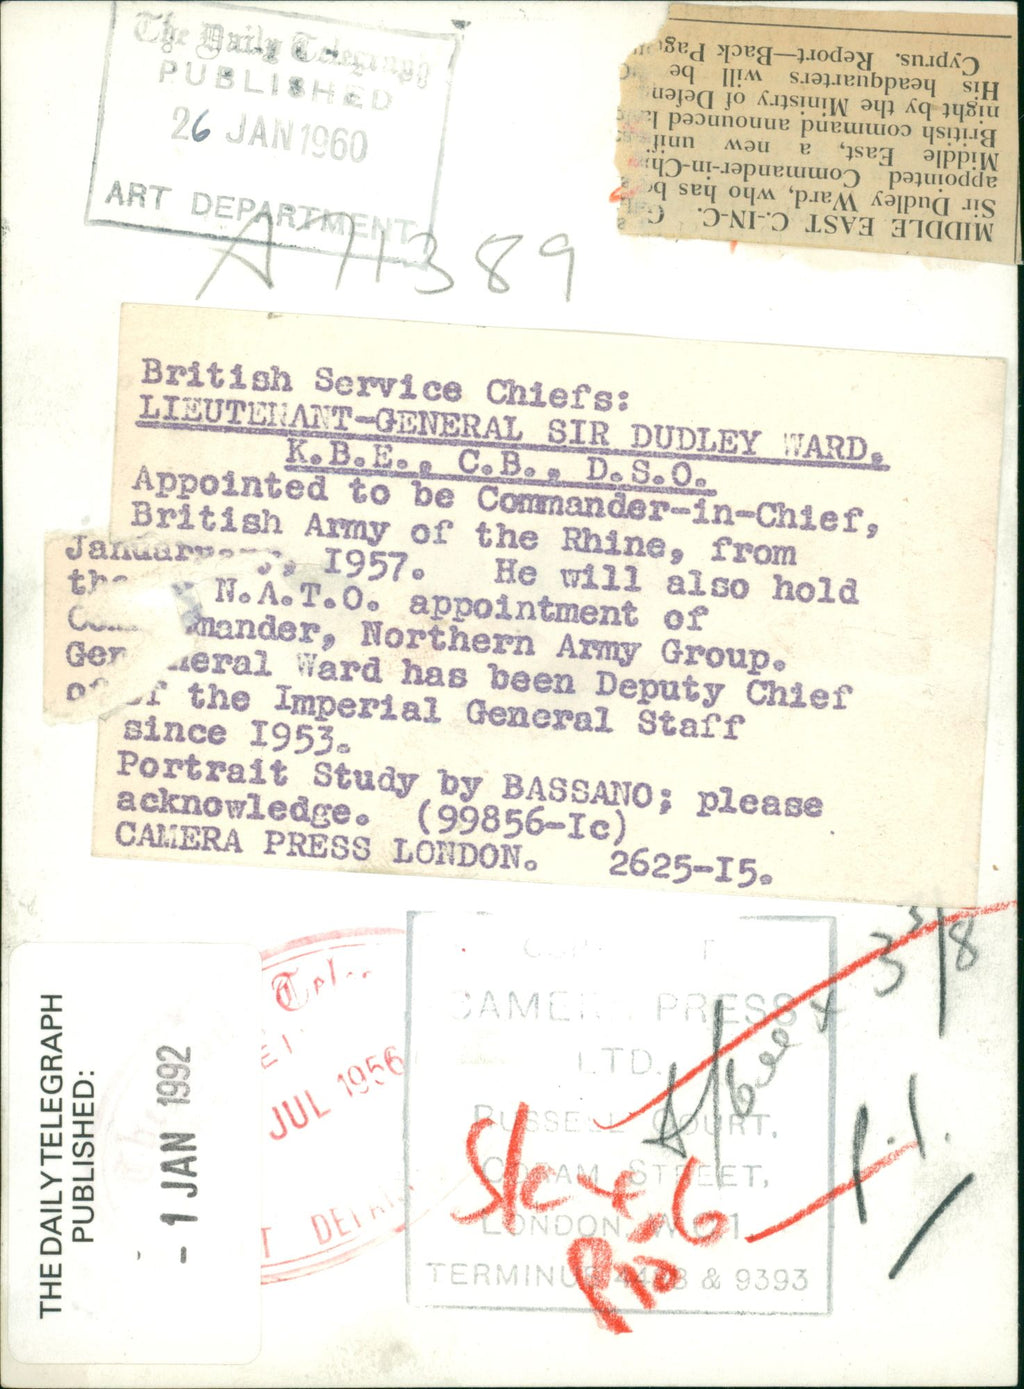 The Daily Telegraph
PUBLISHED
26 JAN 1960
ART DEPARTMENT
A71389
MIDDLE EAST C.-IN-C.
Sir Dudley Ward, who has
appointed Commander-in-Chi
Middle East, a new unif
British command announced
night by the Ministry of Defen
His headquarters will be
Cyprus. Report—Back Page
British Service Chiefs:
LIEUTENANT-GENERAL SIR DUDLEY WARD.
K.B.E., C.B., D.S.O.
Appointed to be Commander-in-Chief,
British Army of the Rhine, from
Januar , I957. He will also hold
th N.A.T.O. appointment of
mander, Northern Army Group.
Gen neral Ward has been Deputy Chief
of of the Imperial General Staff
since I953.
Portrait Study by BASSANO; please
acknowledge. (99856-Ic)
CAMERA PRESS LONDON. 2625-I5.
THE DAILY TELEGRAPH
PUBLISHED:
- 1 JAN 1992
JUL 1956
CAMERA PRESS
LTD.
RUSSELL COURT,
CORAM STREET,
LONDON, W.C.1
TERMINUS 4488 & 9393
3 3/8